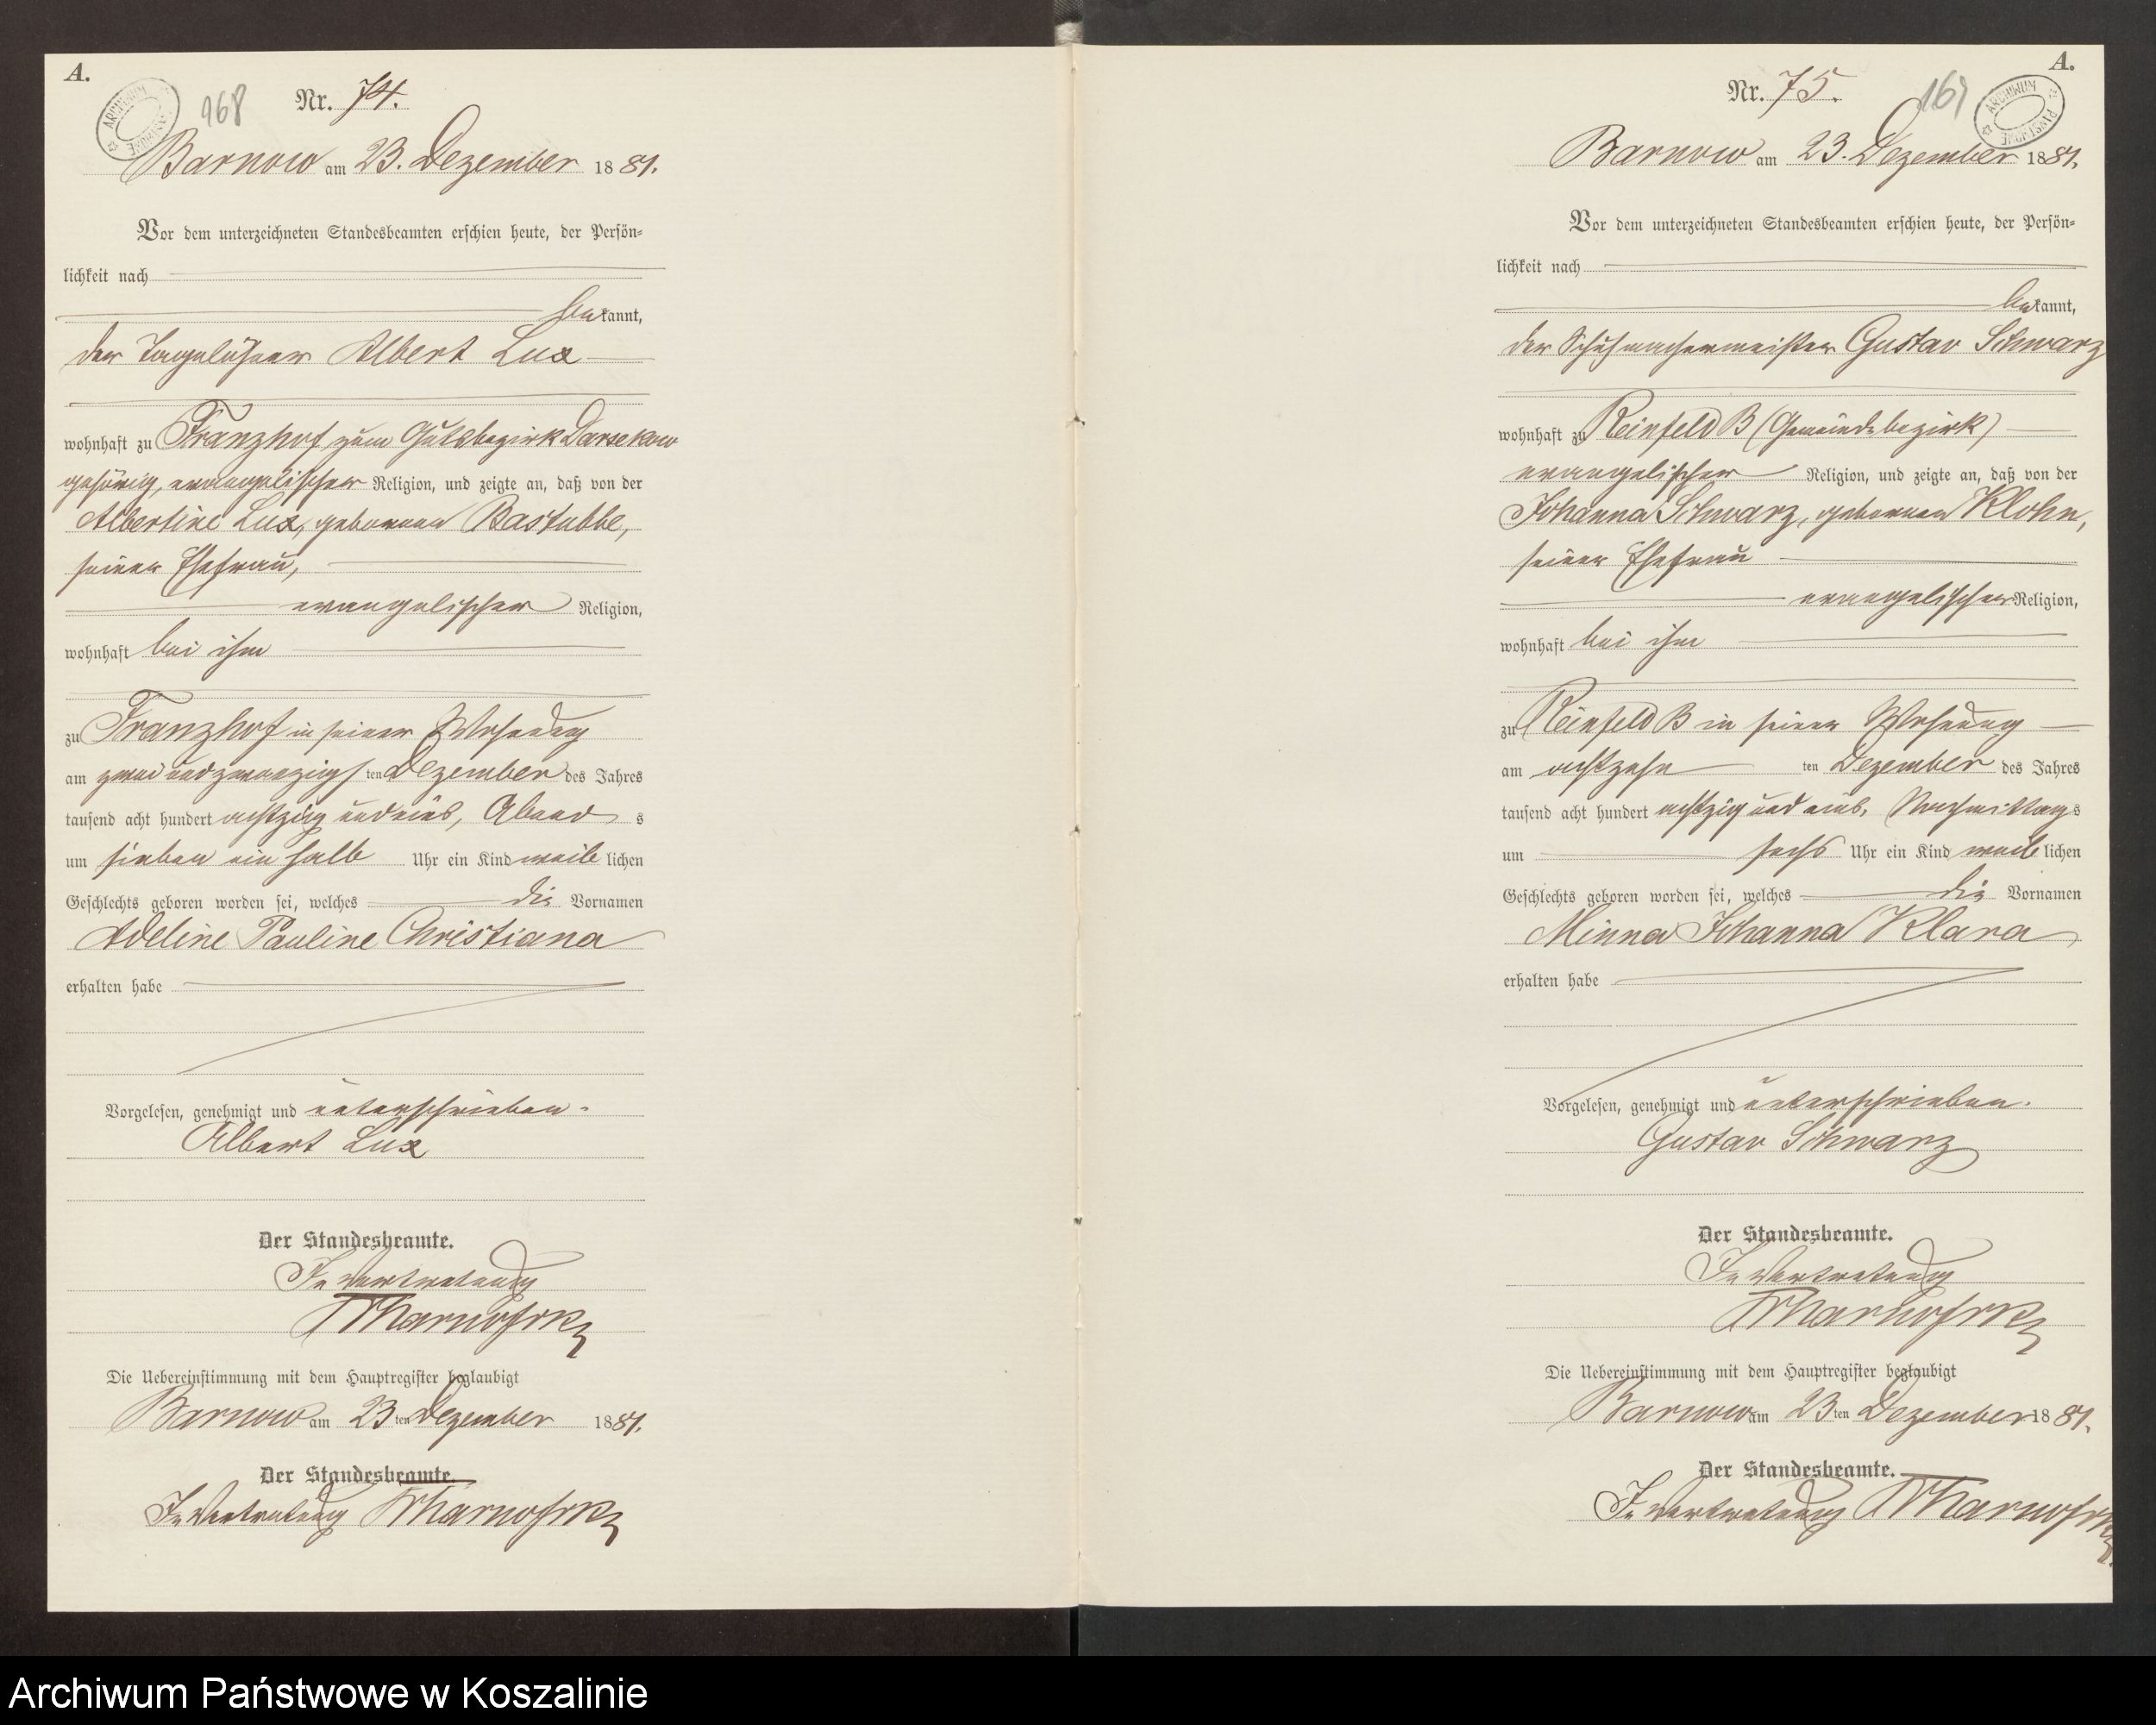 A.
168
Nr. 74.
Barnow am 23. Dezember 1881.
Vor dem unterzeichneten Standesbeamten erschien heute, der Persön-
lichkeit nach
bekannt,
der Tagelöhner Albert Lux
wohnhaft zu Franzhof zum Gutsbezirk Darsekow
gehörig, evangelischer Religion, und zeigte an, daß von der
Albertine Lux, geborenen Bastubbe,
seiner Ehefrau,
evangelischer Religion,
wohnhaft bei ihm
zu Franzhof in seiner Wohnung
am zwei und zwanzigs ten Dezember des Jahres
tausend acht hundert achtzig und eins, Abend s
um sieben ein halb Uhr ein Kind weib lichen
Geschlechts geboren worden sei, welches die Vornamen
Adeline Pauline Christiana
erhalten habe
Vorgelesen, genehmigt und unterschrieben.
Albert Lux
Der Standesbeamte.
In Vertretung
Die Uebereinstimmung mit dem Hauptregister beglaubigt
Barnow am 23 ten Dezember 1881.
Der Standesbeamte.
In Vertretung
A.
169
ARCHIWUM
Nr. 75.
Barnow am 23. Dezember 1881.
Vor dem unterzeichneten Standesbeamten erschien heute, der Persön-
lichkeit nach
bekannt,
der Schuhmachermeister Gustav Schwarz
wohnhaft zu Reinfeld B (Gemeindebezirk)
evangelischer Religion, und zeigte an, daß von der
Johanna Schwarz, geborenen Klohn,
seiner Ehefrau
evangelischer Religion,
wohnhaft bei ihm
zu Reinfeld B in seiner Wohnung
am achtzehn ten Dezember des Jahres
tausend acht hundert achtzig und eins, Nachmittags
um sechs Uhr ein Kind weib lichen
Geschlechts geboren worden sei, welches die Vornamen
Minna Johanna Klara
erhalten habe
Vorgelesen, genehmigt und unterschrieben.
Gustav Schwarz
Der Standesbeamte.
In Vertretung
Die Uebereinstimmung mit dem Hauptregister beglaubigt
Barnow am 23 ten Dezember 1881.
Der Standesbeamte.
In Vertretung
Archiwum Państwowe w Koszalinie